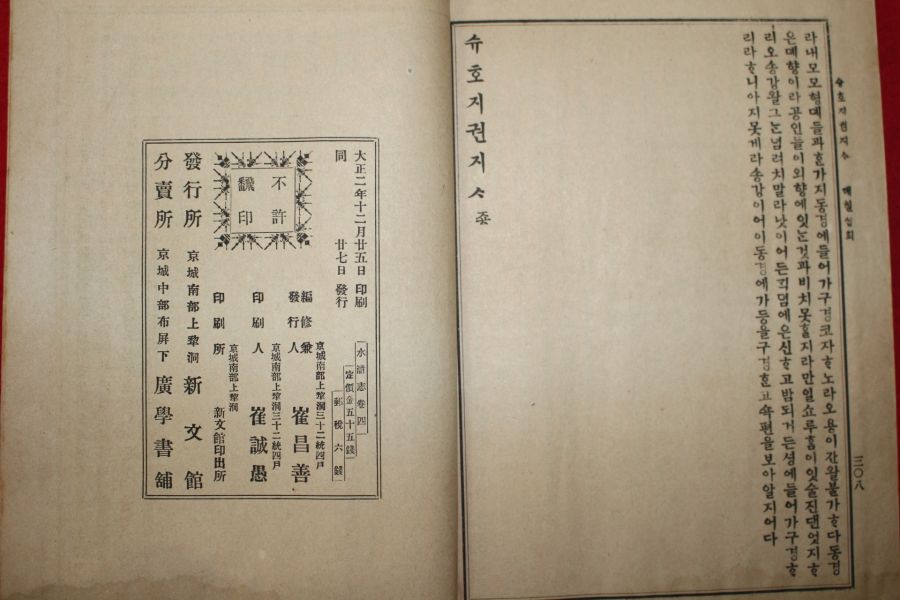 슈호지권지ᄉ 뎨칠십회 三〇八
라내모모형뎨들과ᄒᆞᆫ가지동경에들어가구경코자ᄒᆞ노라오용이잔왈불가ᄒᆞ다동경
은뎨향이라공인들이외향에잇ᄂᆞᆫ것과비치못ᄒᆞᆯ지라만일쇼루홈이잇슬진댄엇지ᄒᆞ
리오송강왈그ᄂᆞᆫ념려치말라낫이어든ᄀᆡᆨ뎜에은신ᄒᆞ고밤되거든셩에들어가구경ᄒᆞ
리라ᄒᆞ니아지못게라송강이어이동경에가등을구경ᄒᆞᆫ고속편을보아알지어다
슈호지권지ᄉ 죵
大正二年十二月廿五日 印刷
同 廿七日 發行
水滸志卷四
定價金五十五錢
郵稅六錢
不許
飜印
京城南部上犂洞三十二統四戶
編修兼發行人 崔昌善
京城南部上犂洞三十二統四戶
印刷人 崔誠愚
京城南部上犂洞
印刷所 新文館印出所
發行所 京城南部上犂洞 新文館
分賣所 京城中部布屏下 廣學書舖